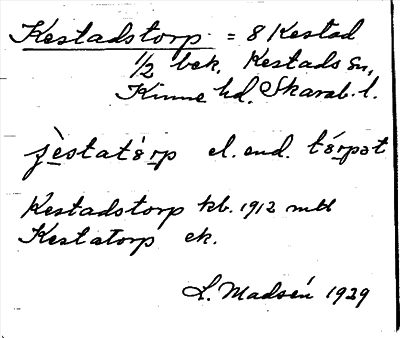 Kestadstorp = 8 Kestad
1/2 bek. Kestads sn,
Kinne hd. Skarab. l.
el. end. tórpət
Kestadstorp kb. 1912 mbl
Kestatorp ek.
L. Madsén 1929